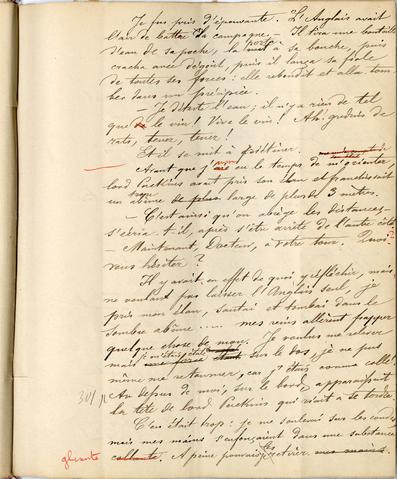 Je fus pris d'épouvante. L'Anglais avait
l'air de battre la campagne. Il tira une bouteille
d'eau de sa poche, la porta à sa bouche, puis
cracha avec dégoût, puis il lança sa fiole
de toutes ses forces: elle rebondit et alla tom-
ber dans un précipice.
— Je déteste l'eau; il n'y a rien de tel
que le vin! Vive le vin! Ah! gredins de
rats, tenez, tenez!
Et il se mit à
Avant que j'eusse eu le temps de m'orienter,
lord Puckins avait pris son élan et franchissait
un abîme large de plus de 3 mètres.
— C'est ainsi qu'on abrège les distances,
s'écria-t-il, après s'être arrêté de l'autre côté.
— Maintenant, Docteur, à votre tour. Quoi?
vous hésitez?
Il y avait en effet de quoi y réfléchir, mais
ne voulant pas laisser l'Anglais seul, je
pris mon élan, sautai et tombai dans le
sombre abîme..... mes reins allèrent frapper
quelque chose de mou. Je voulus me relever
mais j'étais étalé sur le dos, je ne pus
même me retourner, car j'étais comme collé.
Au dessus de moi, sur le bord apparaissait
la tête de lord Puckins qui riait à se tordre.
C'en était trop: je me soulevai sur les coudes,
mais mes mains s'enfonçaient dans une substance
gluante collante. A peine pouvais-je les retirer mes mains.